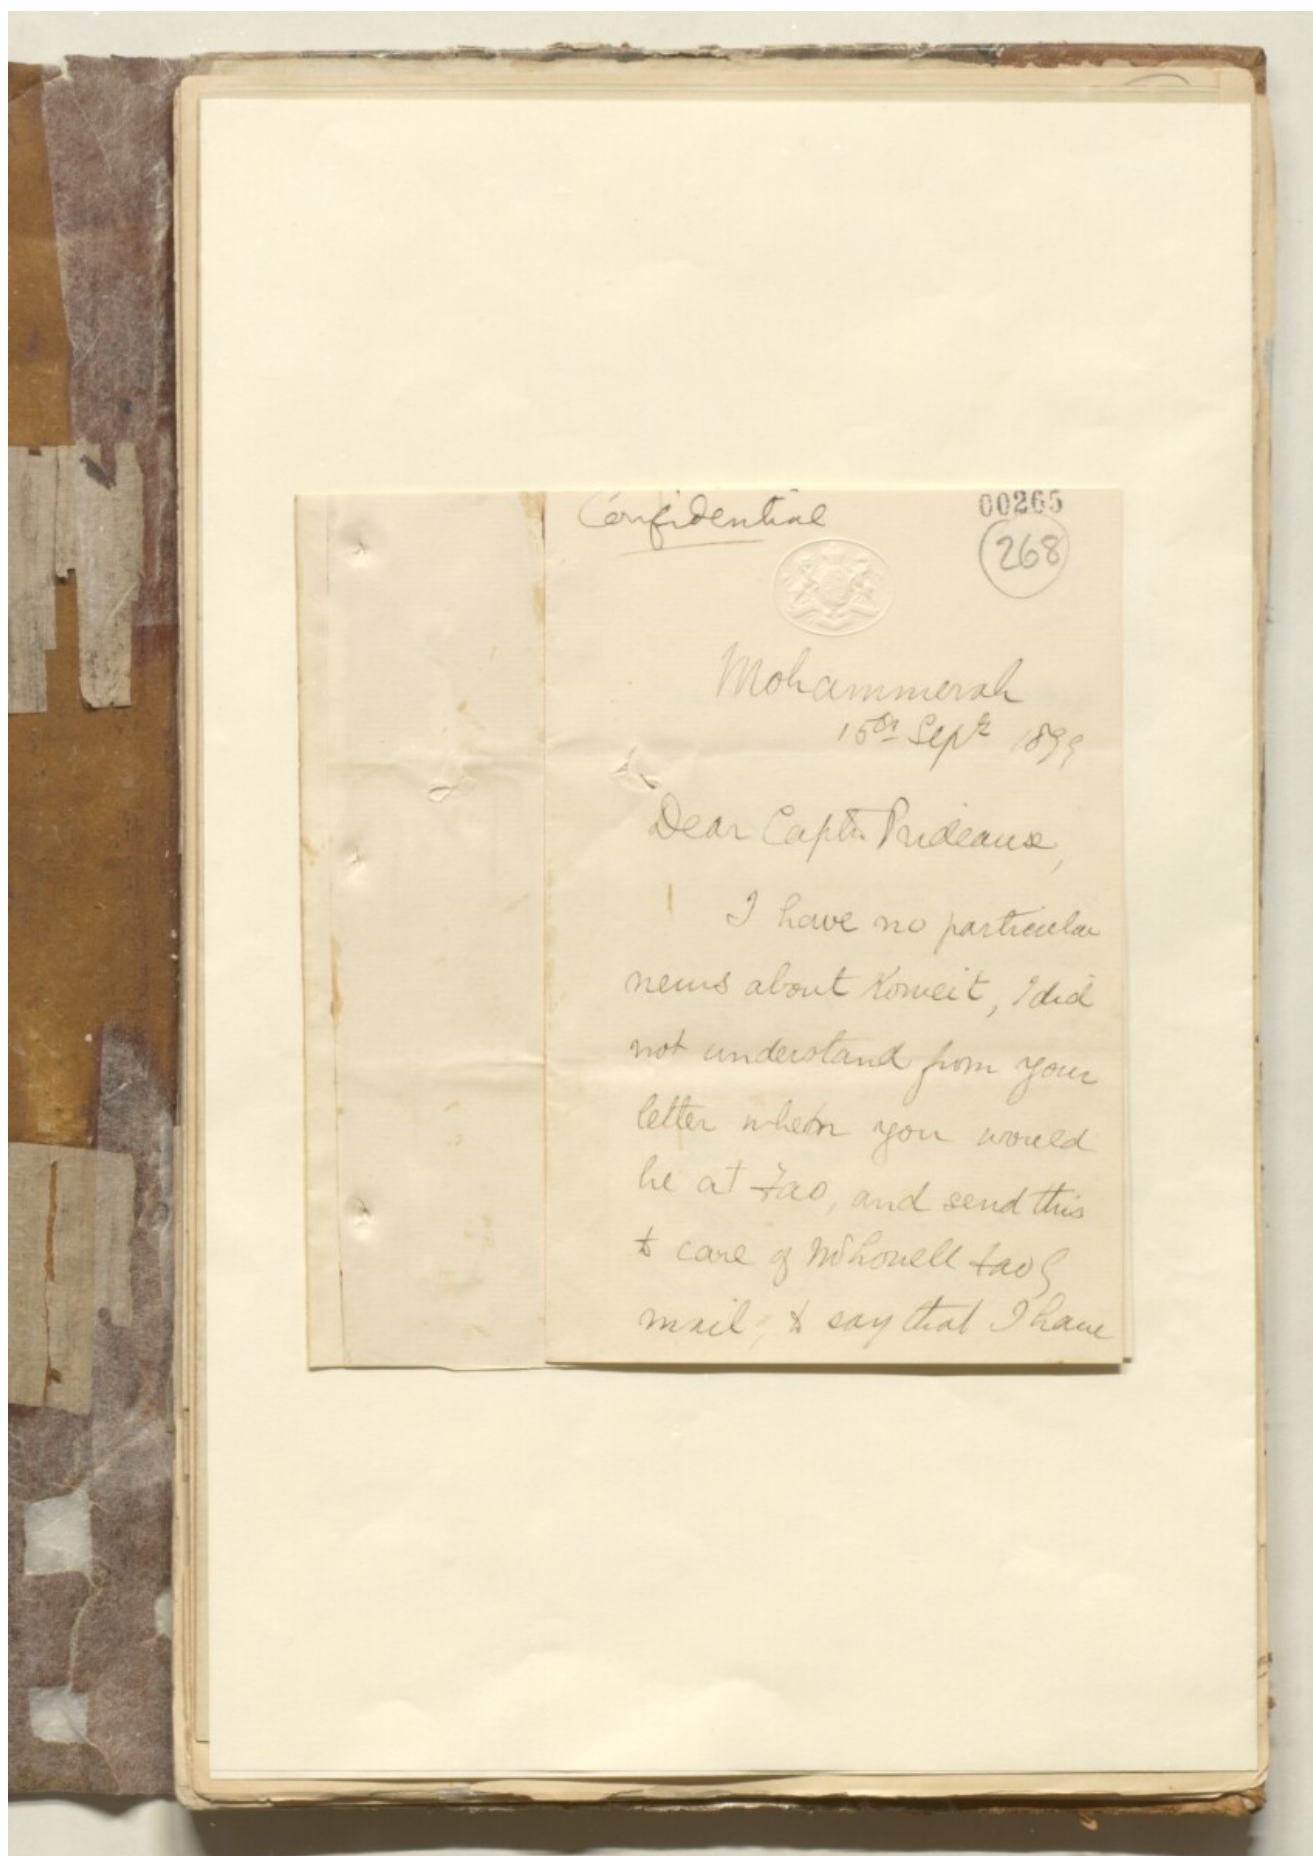 Confidential
00265
268
Mohammerah
15th Septr 1899
Dear Captn Prideaux,
I have no particular
news about Koweit, I did
not understand from your
letter when you would
be at Fao, and send this
to care of Fao
mail, to say that I have